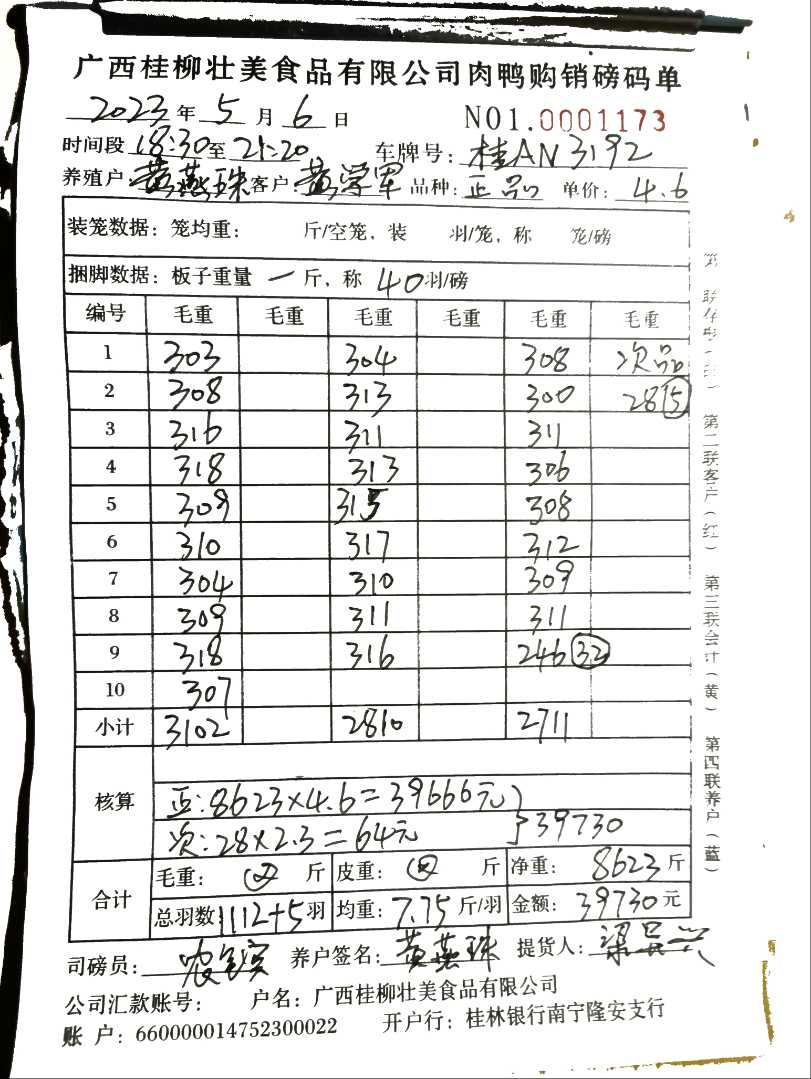 广西桂柳壮美食品有限公司肉鸭购销磅码单
2023年5月6日 NO1.0001173
时间段18:30至21:20 车牌号:桂AN3192
养殖户黄燕珠客户:黄学军 品种:正品 单价:4.6
装笼数据:笼均重: 斤/空笼,装 羽/笼,称 笼/磅
捆脚数据:板子重量 一 斤,称 40羽/磅
编号 毛重 毛重 毛重 毛重 毛重 毛重
1 303 304 308 次品
2 308 313 300 28⑤
3 316 311 311
4 318 313 306
5 309 315 308
6 310 317 312
7 304 310 309
8 309 311 311
9 318 316 246㉜
10 307
小计 3102 2810 2711
核算
正:8623×4.6=39666元
次:28×2.3=64元 }39730
合计
毛重: 斤 皮重: 斤 净重:8623斤
总羽数1112+5羽 均重:7.75斤/羽 金额:39730元
司磅员: 养户签名:黄燕珠 提货人:
公司汇款账号: 户名:广西桂柳壮美食品有限公司
账 户:660000014752300022 开户行:桂林银行南宁隆安支行
第二联客户(红)
第三联会计(黄)
第四联养户(蓝)